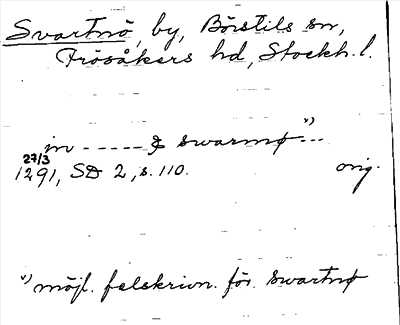 Svartnö, by, Börstils sn,
Frösåkers hd, Stockh. l.
in ----- & swarmø v) ...
27/3
1291, SD 2, s. 110. orig.
v) möjl. felskrivn. för swartnø